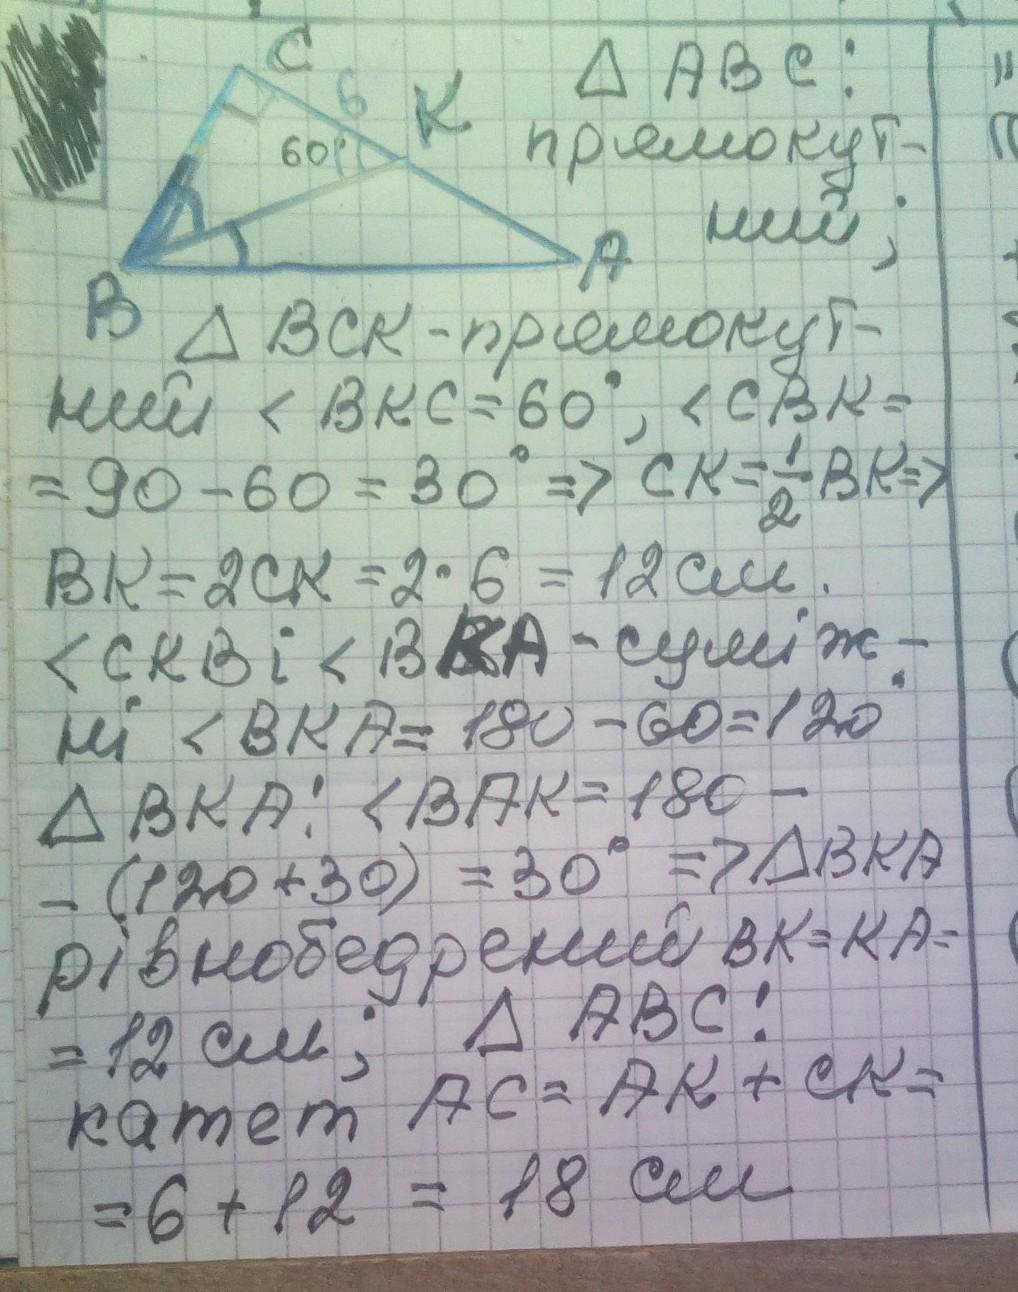 C
6
K
60°
B
A
△ ABC:
прямокут-
ний;
△ BCK-прямокут-
ний <BKC=60°, <CBK=
=90-60=30° => CK=1/2BK=>
BK=2CK=2·6=12см.
<CKBi <BKA-суміж-
ні <BKA=180-60=120°
△ BKA: <BAK=180-
-(120+30)=30° =>△BKA
рівнобедрений BK=KA=
=12 см; △ ABC:
катет AC=AK+CK=
=6+12=18 см